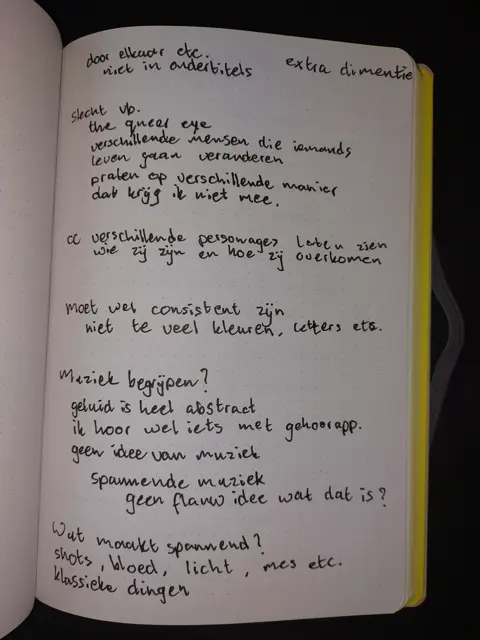 door elkaar etc.
niet in ondertitels
extra dimentie
slecht vb.
the queer eye
verschillende mensen die iemands
leven gaan veranderen
praten op verschillende manier
dat krijg ik niet mee.
cc verschillende personages laten zien
wie zij zijn en hoe zij overkomen
moet wel consistent zijn
niet te veel kleuren, letters etc.
Muziek begrijpen?
geluid is heel abstract
ik hoor wel iets met gehoorapp.
geen idee van muziek
spannende muziek
geen flauw idee wat dat is?
Wat maakt spannend?
shots, bloed, licht, mes etc.
klassieke dingen